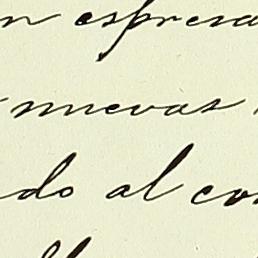 n espresa
nuevas
do al con